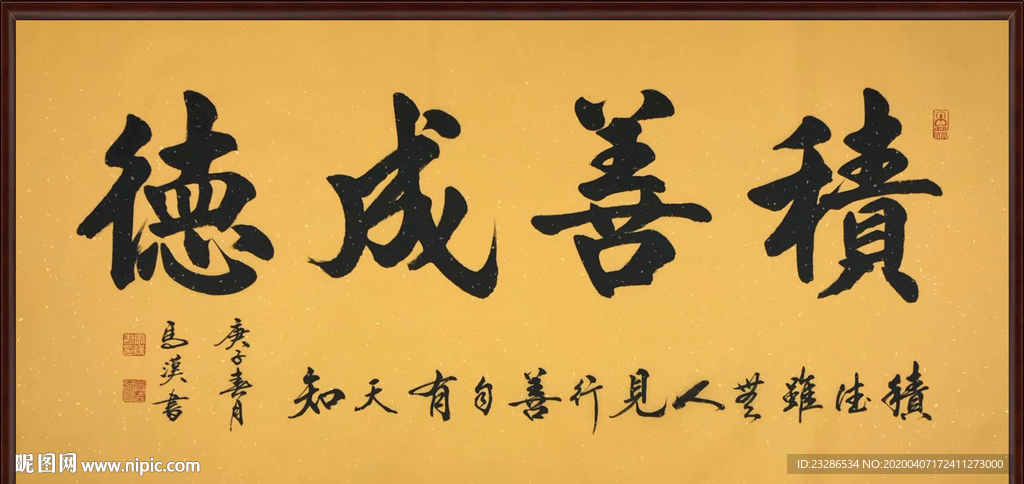 積善成德
積德雖無人見行善自有天知
庚子春月
馬漢書
昵图网 www.nipic.com
ID:23286534 NO:20200407172411273000